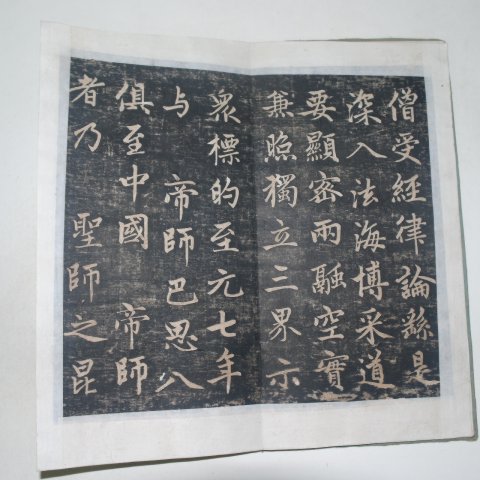 僧受經律論繇是
深入法海博采道
要顯密兩融空實
兼照獨立三界示
衆標的至元七年
与 帝師巴思八
俱至中國 帝師
者乃 聖師之昆